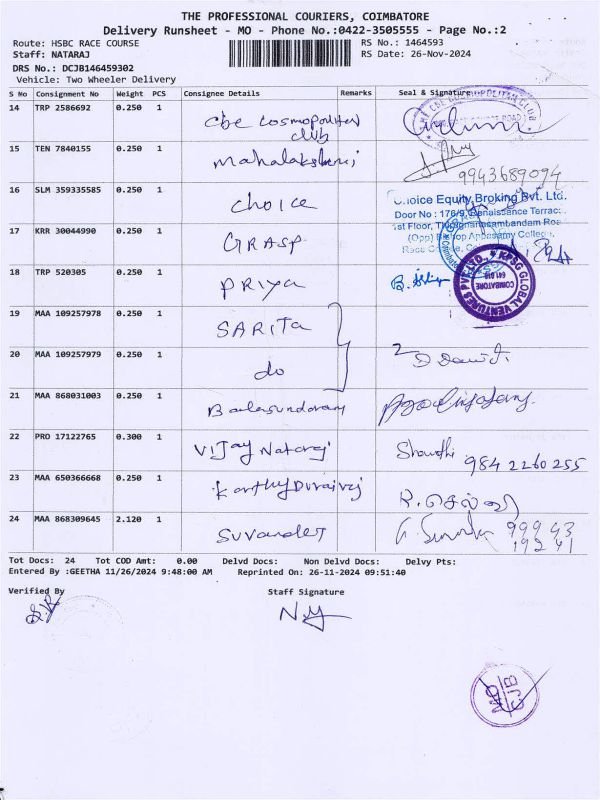 THE PROFESSIONAL COURIERS, COIMBATORE
Delivery Runsheet - MO - Phone No.:0422-3505555 - Page No.:2
Route: HSBC RACE COURSE RS No.: 1464593
Staff: NATARAJ RS Date: 26-Nov-2024
DRS No.: DCJB146459302
Vehicle: Two Wheeler Delivery
S No Consignment No Weight PCS Consignee Details Remarks Seal & Signature
14 TRP 2586692 0.250 1 Cbe Cosmopolitan
club
15 TEN 7840155 0.250 1 Mahalakshmi
9943689094
16 SLM 359335585 0.250 1 Choice
Choice Equity Broking Pvt. Ltd.
Door No : 176/9, Renaissance Terrace,
1st Floor, Thirugnanasambandam Road
(Opp) Bishop Appasamy College,
Race Course,
17 KRR 30044990 0.250 1 GRASP
18 TRP 520305 0.250 1 PRIYA
KPSG GLOBAL VENTURES PVT LTD.,
COIMBATORE
641 018
19 MAA 109257978 0.250 1 SARITA
20 MAA 109257979 0.250 1 do 2
21 MAA 868031003 0.250 1 Balasundaram
22 PRO 17122765 0.300 1 Vijay Nataraj Shanthi
984 2260 255
23 MAA 650366668 0.250 1 Karthy Durairaj
24 MAA 868309645 2.120 1 Suvander 99943
19241
Tot Docs: 24 Tot COD Amt: 0.00 Delvd Docs: Non Delvd Docs: Delvy Pts:
Entered By :GEETHA 11/26/2024 9:48:00 AM Reprinted On: 26-11-2024 09:51:40
Verified By Staff Signature
MO
CJB